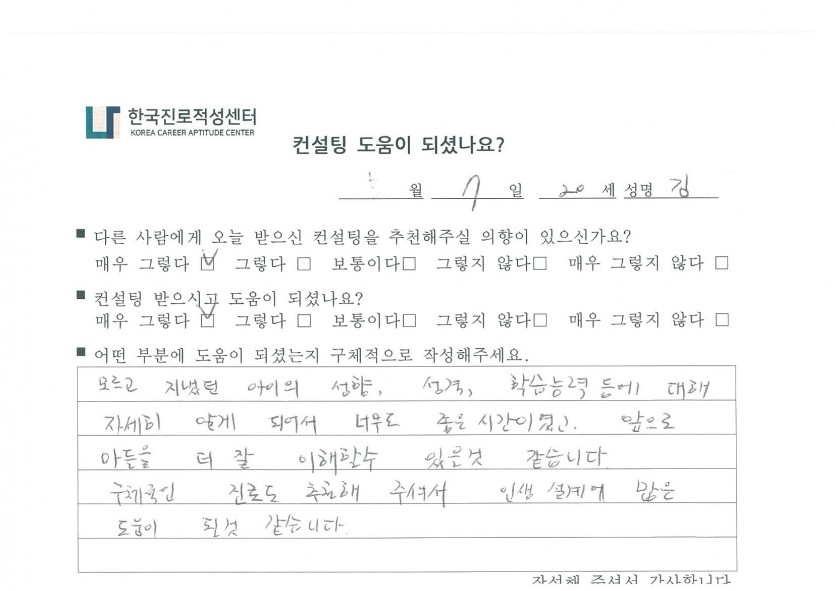 한국진로적성센터
KOREA CAREER APTITUDE CENTER
컨설팅 도움이 되셨나요?
월 7 일 20 세 성명 김
■ 다른 사람에게 오늘 받으신 컨설팅을 추천해주실 의향이 있으신가요?
매우 그렇다 ☑ 그렇다 □ 보통이다□ 그렇지 않다□ 매우 그렇지 않다 □
■ 컨설팅 받으시고 도움이 되셨나요?
매우 그렇다 ☑ 그렇다 □ 보통이다□ 그렇지 않다□ 매우 그렇지 않다 □
■ 어떤 부분에 도움이 되셨는지 구체적으로 작성해주세요.
모르고 지냈던 아이의 성향, 성격, 학습능력 등에 대해
자세히 알게 되어서 너무도 좋은 시간이였고. 앞으로
아들을 더 잘 이해할수 있을것 같습니다.
구체적인 진로도 추천해 주셔서 인생 설계에 많은
도움이 될것 같습니다.
작성해 주셔서 감사합니다